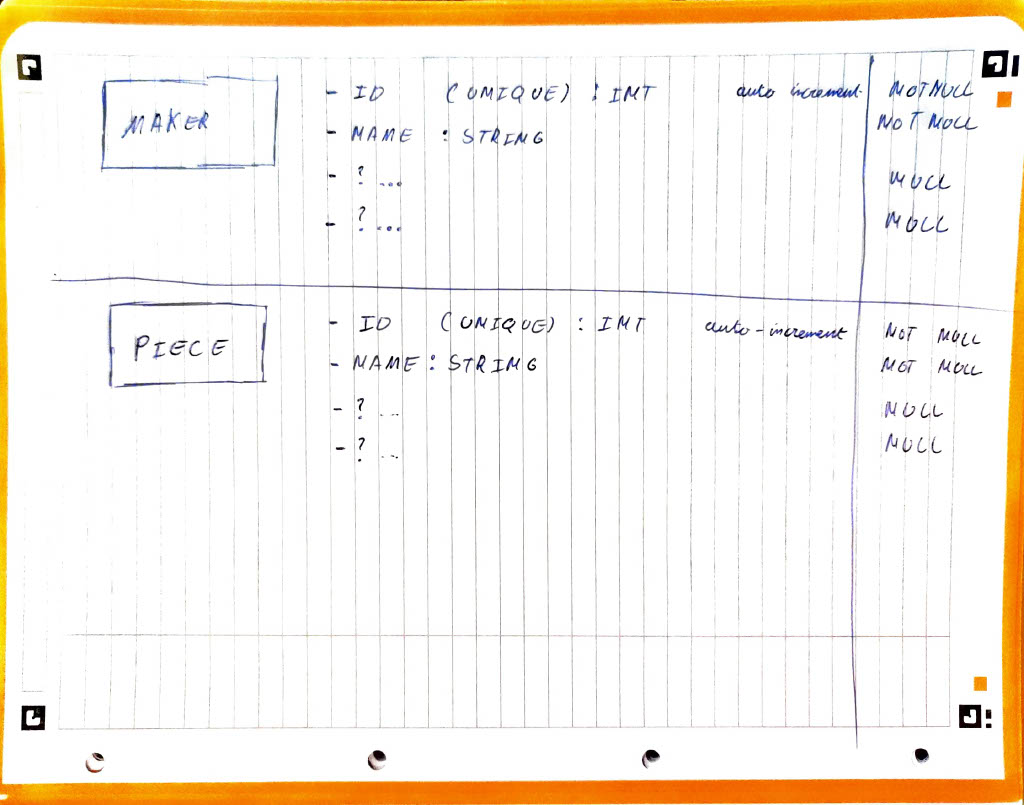 MAKER
- ID (UNIQUE) : INT auto increment NOT NULL
- NAME : STRING NOT NULL
- ? ... NULL
- ? ... NULL
PIECE
- ID (UNIQUE) : INT auto-increment NOT NULL
- NAME : STRING NOT NULL
- ? ... NULL
- ? ... NULL